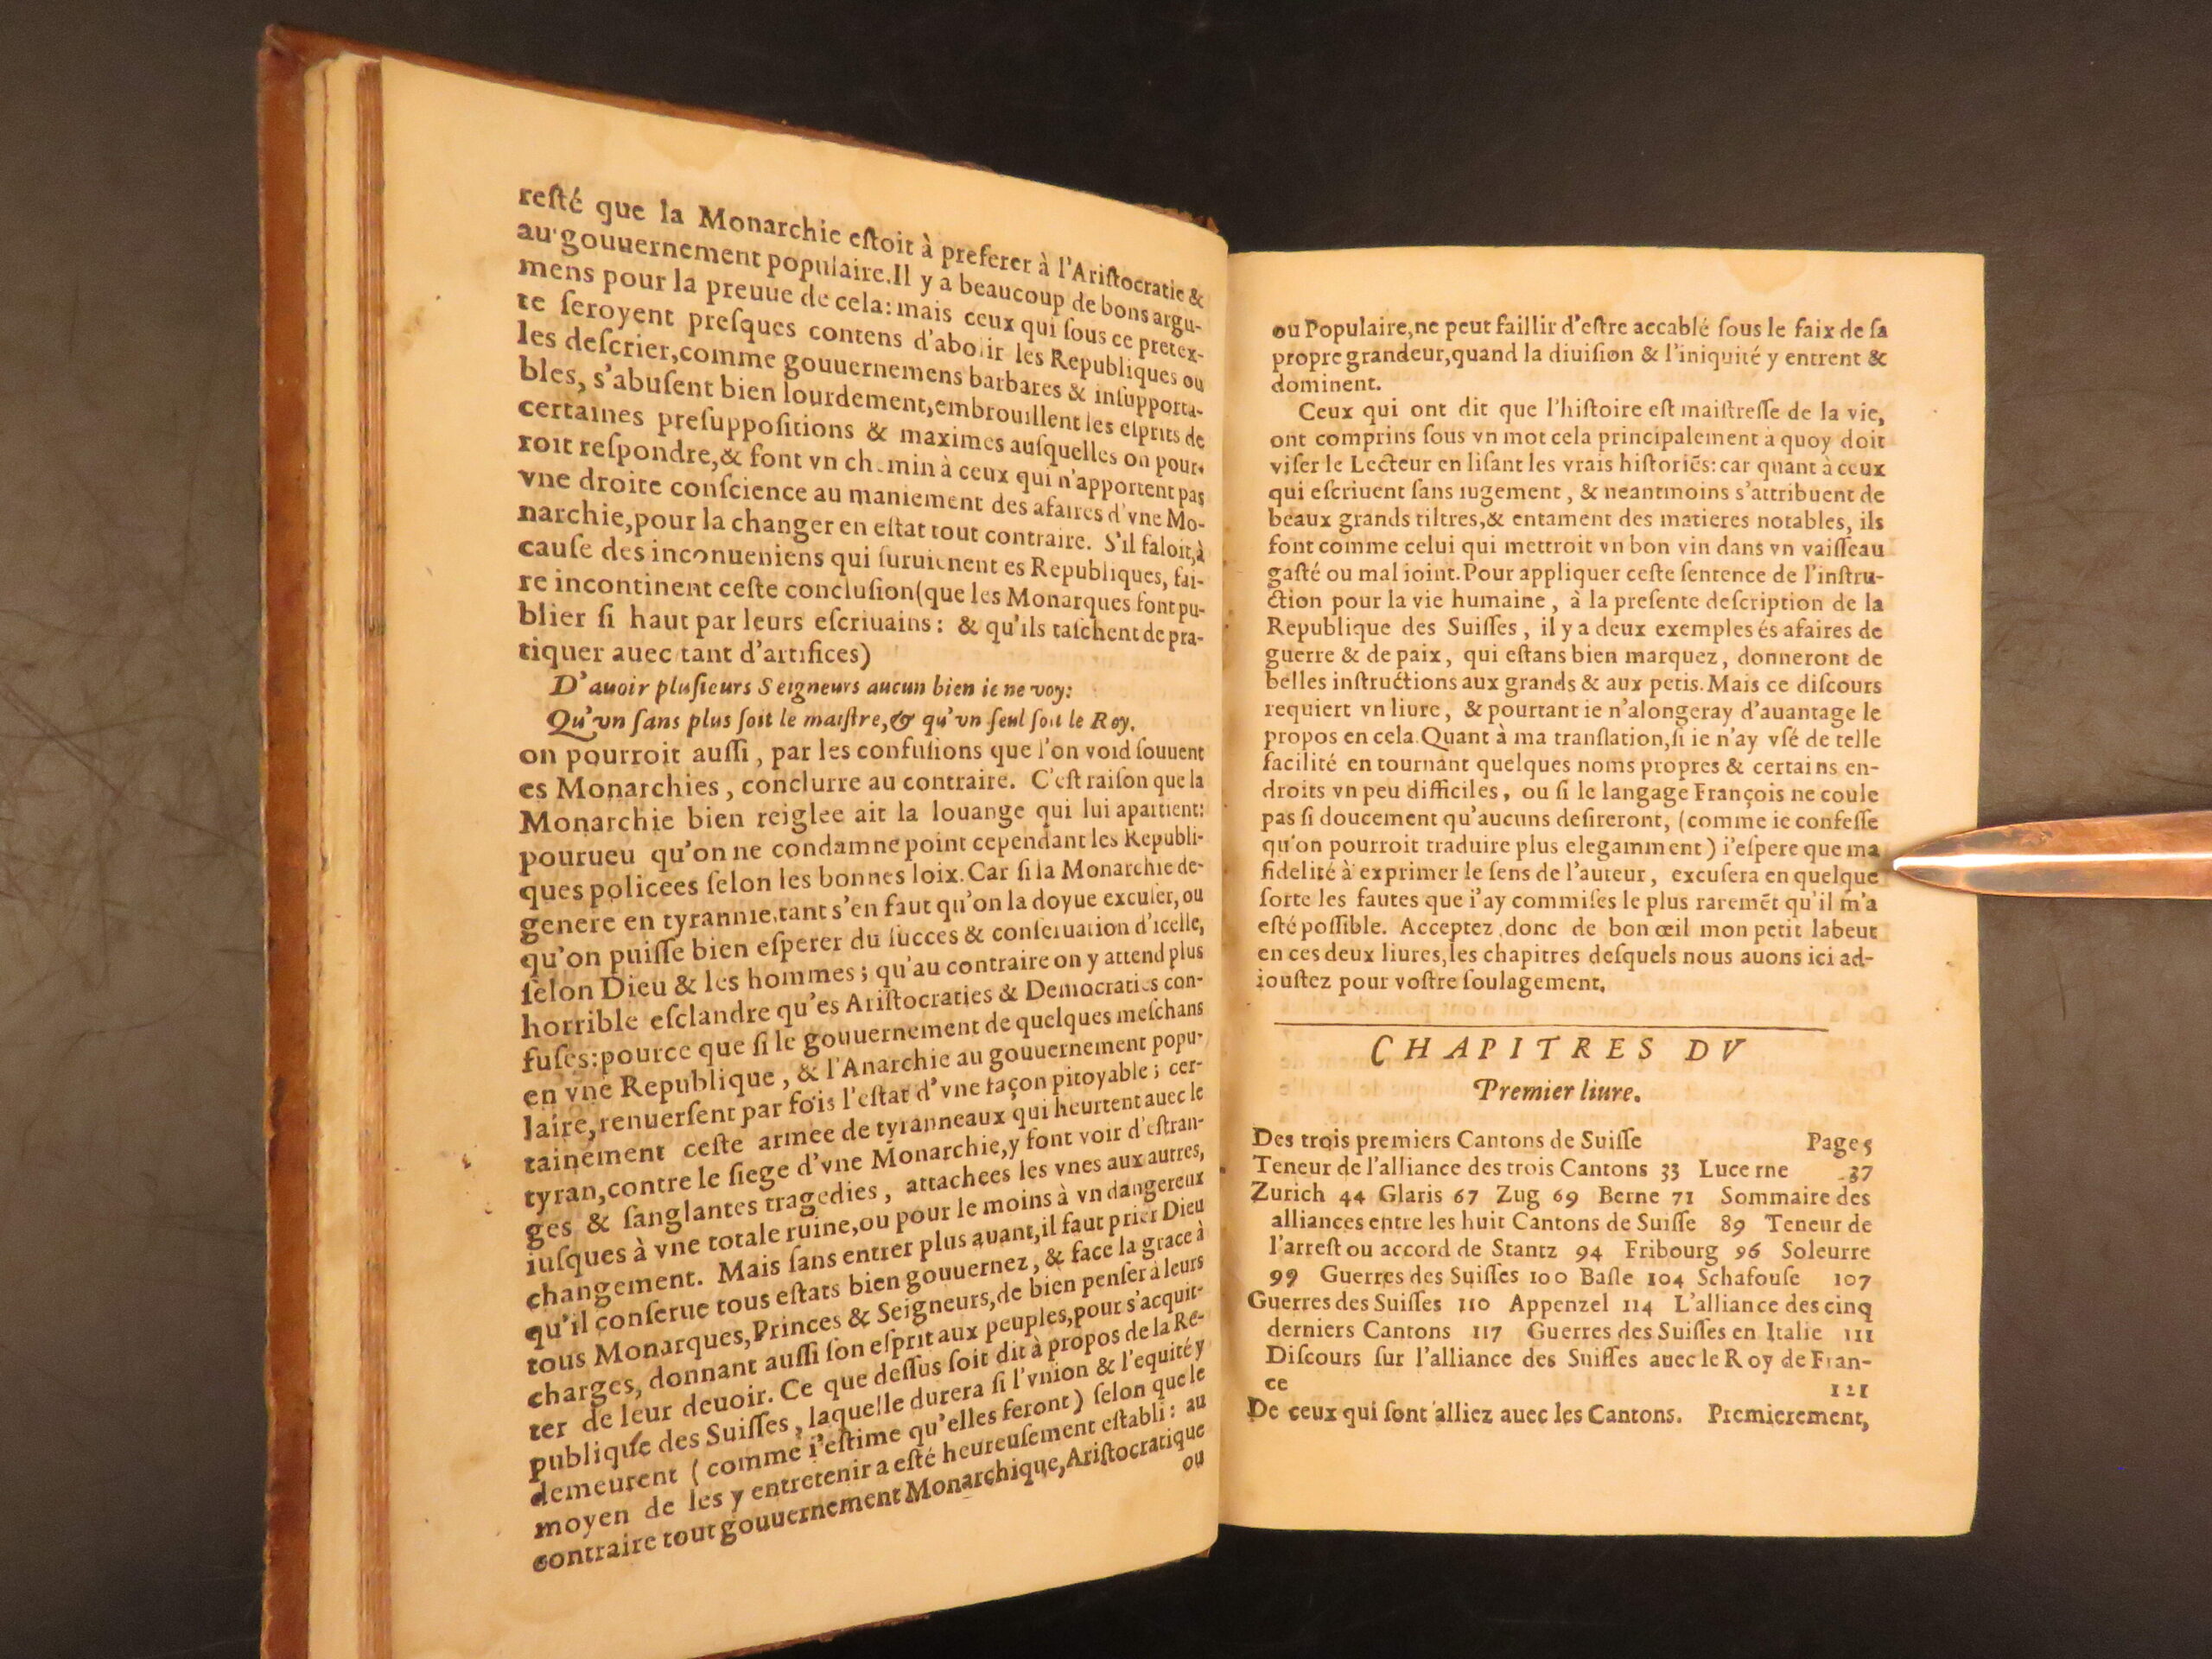 reſté que la Monarchie eſtoit à preferer à l'Ariſtocratie &
au gouuernement populaire. Il y a beaucoup de bons argu-
mens pour la preuue de cela: mais ceux qui ſous ce pretex-
te ſeroyent preſques contens d'abolir les Republiques ou
les deſcrier, comme gouuernemens barbares & inſupporta-
bles, s'abuſent bien lourdement, embrouillent les eſprits de
certaines preſuppoſitions & maximes auſquelles on pour-
roit reſpondre, & font vn chemin à ceux qui n'apportent pas
vne droite conſcience au maniement des afaires d'vne Mo-
narchie, pour la changer en eſtat tout contraire. S'il faloit, à
cauſe des inconueniens qui ſuruienent es Republiques, fai-
re incontinent ceſte concluſion (que les Monarques font pu-
blier ſi haut par leurs eſcriuains: & qu'ils taſchent de pra-
tiquer auec tant d'artifices)
D'auoir pluſieurs Seigneurs aucun bien ie ne voy:
Qu'vn ſans plus ſoit le maiſtre, & qu'vn ſeul ſoit le Roy.
on pourroit auſſi, par les confuſions que l'on void ſouuent
es Monarchies, conclurre au contraire. C'eſt raiſon que la
Monarchie bien reiglee ait la louange qui lui apartient:
pourueu qu'on ne condamne point cependant les Republi-
ques policees ſelon les bonnes loix. Car ſi la Monarchie de-
genere en tyrannie, tant s'en faut qu'on la doyue excuſer, ou
qu'on puiſſe bien eſperer du ſucces & conſeruation d'icelle,
ſelon Dieu & les hommes; qu'au contraire on y attend plus
horrible eſclandre qu'es Ariſtocraties & Democraties con-
fuſes: pource que ſi le gouuernement de quelques meſchans
en vne Republique, & l'Anarchie au gouuernement popu-
laire, renuerſent par fois l'eſtat d'vne façon pitoyable; cer-
tainement ceſte armee de tyranneaux qui heurtent auec le
tyran, contre le ſiege d'vne Monarchie, y font voir d'eſtran-
ges & ſanglantes tragedies, attachees les vnes aux autres,
iuſques à vne totale ruine, ou pour le moins à vn dangereux
changement. Mais ſans entrer plus auant, il faut prier Dieu
qu'il conſerue tous eſtats bien gouuernez, & face la grace à
tous Monarques, Princes & Seigneurs, de bien penſer à leurs
charges, donnant auſſi ſon eſprit aux peuples, pour s'acquit-
ter de leur deuoir. Ce que deſſus ſoit dit à propos de la Re-
publique des Suiſſes, laquelle durera ſi l'vnion & l'equité y
demeurent (comme i'eſtime qu'elles feront) ſelon que le
moyen de les y entretenir a eſté heureuſement eſtabli: au
contraire tout gouuernement Monarchique, Ariſtocratique
ou
ou Populaire, ne peut faillir d'eſtre accablé ſous le faix de ſa
propre grandeur, quand la diuiſion & l'iniquité y entrent &
dominent.
Ceux qui ont dit que l'hiſtoire eſt maiſtreſſe de la vie,
ont comprins ſous vn mot cela principalement à quoy doit
viſer le Lecteur en liſant les vrais hiſtoriēs: car quant à ceux
qui eſcriuent ſans iugement, & neantmoins s'attribuent de
beaux grands tiltres, & entament des matieres notables, ils
font comme celui qui mettroit vn bon vin dans vn vaiſſeau
gaſté ou mal ioint. Pour appliquer ceſte ſentence de l'inſtru-
ction pour la vie humaine, à la preſente deſcription de la
Republique des Suiſſes, il y a deux exemples és afaires de
guerre & de paix, qui eſtans bien marquez, donneront de
belles inſtructions aux grands & aux petis. Mais ce diſcours
requiert vn liure, & pourtant ie n'alongeray d'auantage le
propos en cela. Quant à ma tranſlation, ſi ie n'ay vſé de telle
facilité en tournant quelques noms propres & certains en-
droits vn peu difficiles, ou ſi le langage François ne coule
pas ſi doucement qu'aucuns deſireront, (comme ie confeſſe
qu'on pourroit traduire plus elegamment) i'eſpere que ma
fidelité à exprimer le ſens de l'auteur, excuſera en quelque
ſorte les fautes que i'ay commiſes le plus raremēt qu'il m'a
eſté poſſible. Acceptez donc de bon œil mon petit labeur
en ces deux liures, les chapitres deſquels nous auons ici ad-
iouſtez pour voſtre ſoulagement.
CHAPITRES DV
Premier liure.
Des trois premiers Cantons de Suiſſe Page 5
Teneur de l'alliance des trois Cantons 33 Lucerne 37
Zurich 44 Glaris 67 Zug 69 Berne 71 Sommaire des
alliances entre les huit Cantons de Suiſſe 89 Teneur de
l'arreſt ou accord de Stantz 94 Fribourg 96 Soleurre
99 Guerres des Suiſſes 100 Baſle 104 Schafouſe 107
Guerres des Suiſſes 110 Appenzel 114 L'alliance des cinq
derniers Cantons 117 Guerres des Suiſſes en Italie 111
Diſcours ſur l'alliance des Suiſſes auec le Roy de Fran-
ce 121
De ceux qui ſont alliez auec les Cantons. Premierement,